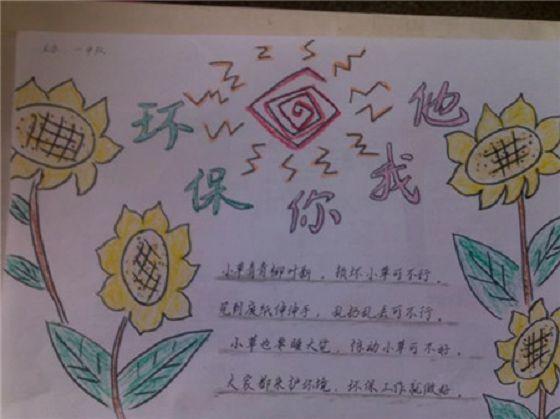 一中队
环保你我他
小草青青柳叶新，损坏小草可不行。
见到废纸伸伸手，乱扔乱丢可不行。
小草也要睡大觉，惊动小草可不好。
大家都来护环境，环保工作就做好。